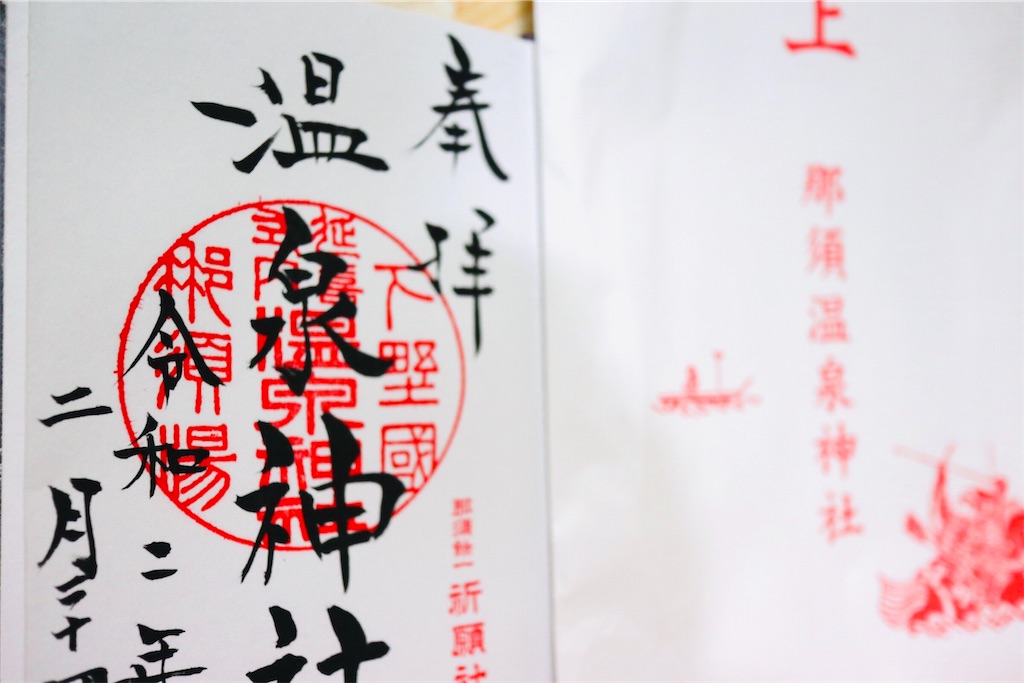 奉拝
那須余一 祈願社
温泉神社
下野國
延喜式内温泉神社
那須湯
令和二年
二月二十四
上
那須温泉神社